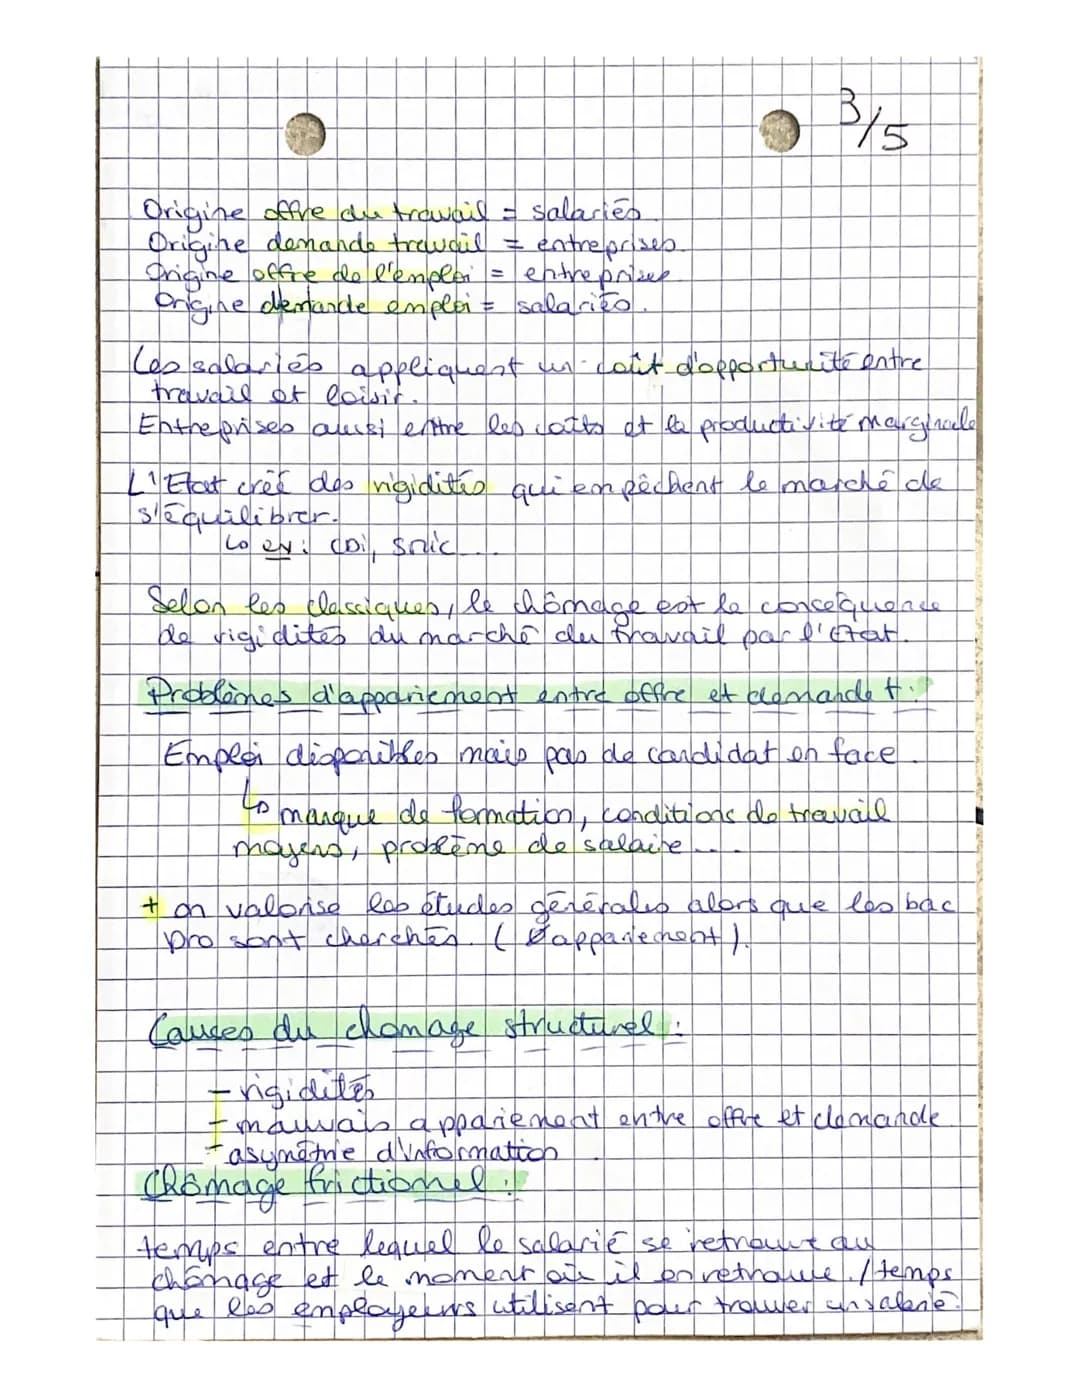 3/5
Origine offre du travail = salariés
Origine demande travail = entreprises.
Origine offre de l'emploi = entreprises
Origine demande emploi = salariés.
Les salariés appliquent un coût d'opportunité entre
travail et loisir.
Entreprises aussi entre les coûts et la productivité marginale
L'Etat créé des rigidités qui empêchent le marché de
s'équilibrer.
↳ ex : CDI, Smic...
Selon les classiques, le chômage est la conséquence
de rigidités du marché du travail par l'Etat.
Problèmes d'appariement entre offre et demande t :
Emploi disponibles mais pas de candidat en face.
↳ manque de formation, conditions de travail
moyens, problème de salaire...
+ on valorise les études générales alors que les bac
pro sont cherchés. ( appariement).
Causes du chomage structurel :
- rigidités
- mauvais appariement entre offre et demande
- asymétrie d'information
Chômage frictionnel :
temps entre lequel le salarié se retrouve au
chômage et le moment où il en retrouve. / temps
que les employeurs utilisent pour trouver un salarié.